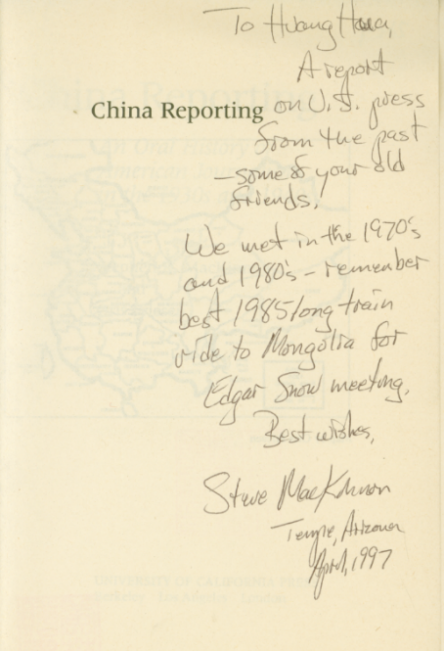 To Huang Hua,
A report
China Reporting on U.S. press
from the past
- some of your old
friends.
We met in the 1970's
and 1980's - remember
best 1985 long train
ride to Mongolia for
Edgar Snow meeting.
Best wishes,
Steve MacKinnon
Tempe, Arizona
April, 1997
UNIVERSITY OF CALIFORNIA PRESS